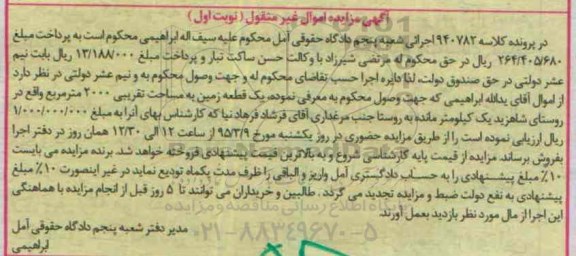 آگهی مزایده اموال غیر منقول (نوبت اول)
در پرونده کلاسه ۹۴۰۷۸۲ اجرائی شعبه پنجم دادگاه حقوقی آمل محکوم علیه سیف اله ابراهیمی محکوم است به پرداخت مبلغ
۲۶۴/۴۰۵/۶۸۰ ریال در حق محکوم له مرتضی شیرزاد با وکالت حسن ساکت تبار و پرداخت مبلغ ۱۳/۱۸۸/۰۰۰ ریال بابت نیم
عشر دولتی در حق صندوق دولت، لذا دایره اجرا حسب تقاضای محکوم له و جهت وصول محکوم به و نیم عشر دولتی در نظر دارد
از اموال آقای یدالله ابراهیمی که جهت وصول محکوم به معرفی نموده، یک قطعه زمین به مساحت تقریبی ۲۰۰۰ مترمربع واقع در
روستای شاهزید یک کیلومتر مانده به روستا جنب مرغداری آقای فرشاد فرهادنیا که کارشناس بهای آنرا به مبلغ ۱/۰۰۰/۰۰۰/۰۰۰
ریال ارزیابی نموده است را از طریق مزایده حضوری در روز یکشنبه مورخ ۹۵/۳/۹ از ساعت ۱۲ الی ۱۲/۳۰ همان روز در دفتر اجرا
بفروش برساند. مزایده از قیمت پایه کارشناسی شروع و به بالاترین قیمت پیشنهادی فروخته خواهد شد. برنده مزایده می بایست
۱۰٪ مبلغ پیشنهادی را به حساب دادگستری آمل واریز و الباقی را ظرف مدت یکماه تودیع نماید در غیر اینصورت ۱۰٪ مبلغ
پیشنهادی به نفع دولت ضبط و مزایده تجدید می گردد. طالبین و خریداران می توانند تا ۵ روز قبل از انجام مزایده با هماهنگی
این اجرا از مال مورد نظر بازدید بعمل آورند.
مدیر دفتر شعبه پنجم دادگاه حقوقی آمل
ابراهیمی
۰۲۱-۸۸۳۴۹۶۷۰-۵